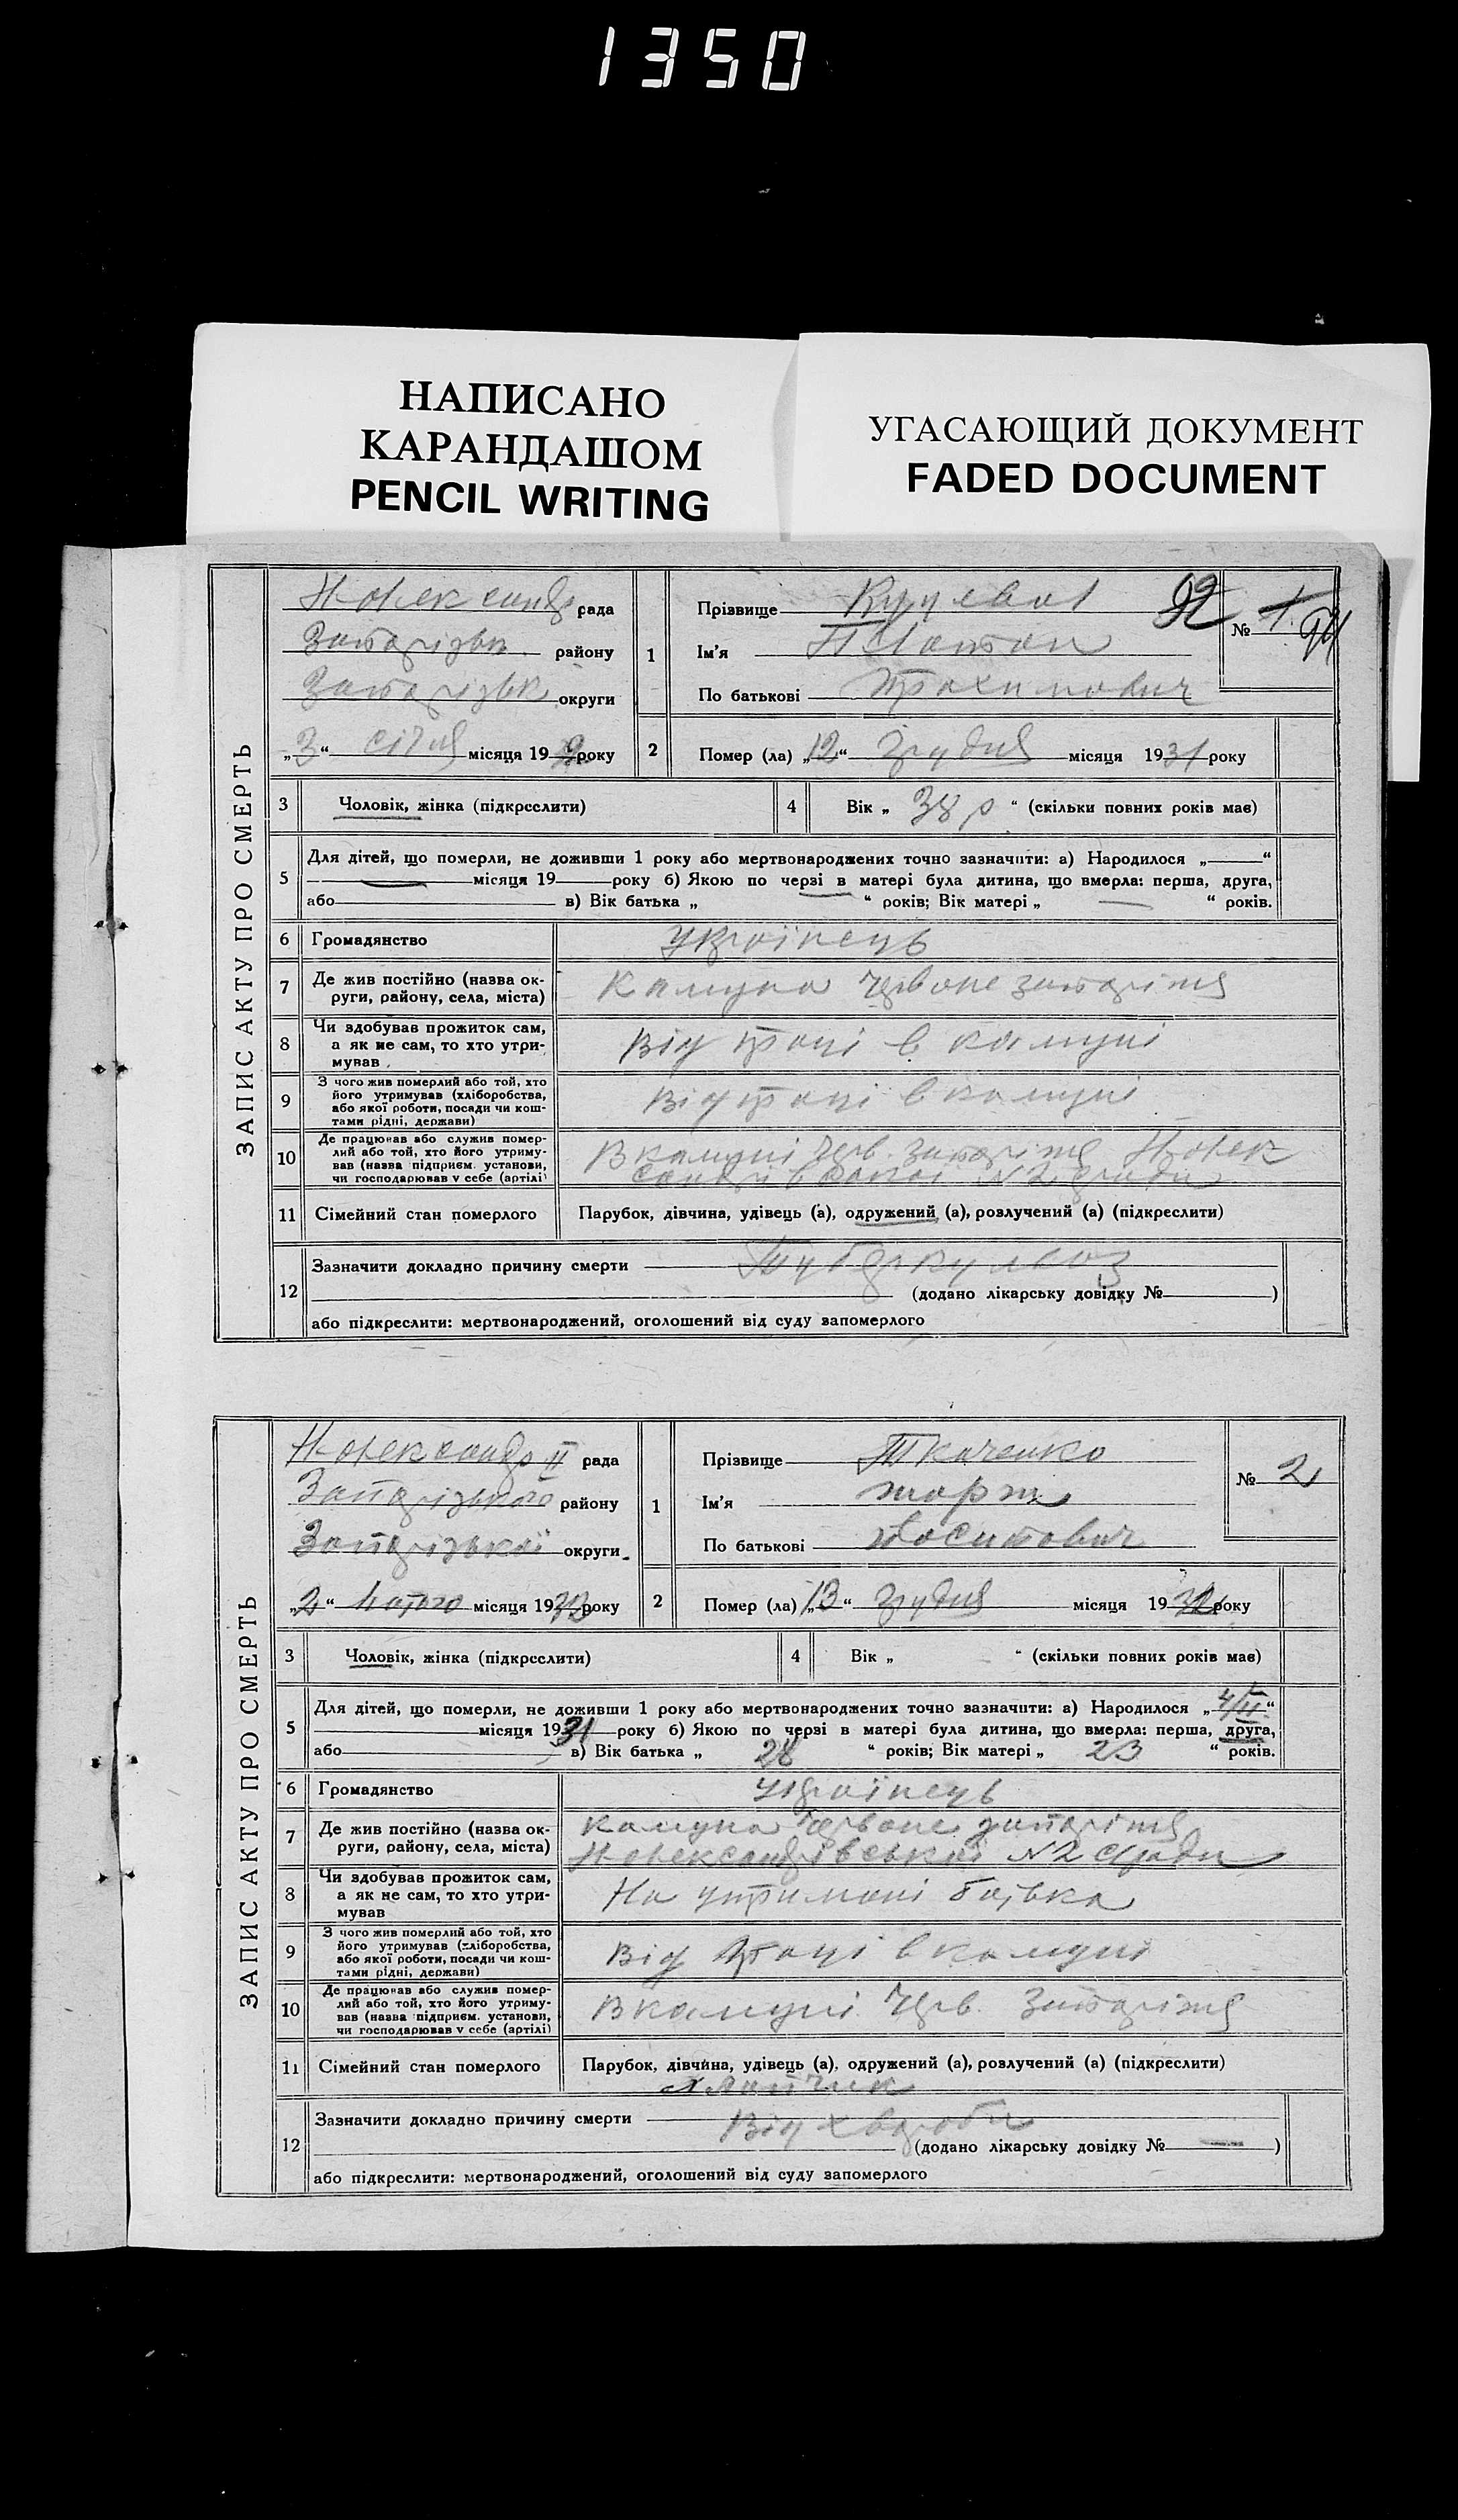 1350
НАПИСАНО
КАРАНДАШОМ
PENCIL WRITING
УГАСАЮЩИЙ ДОКУМЕНТ
FADED DOCUMENT
ЗАПИС АКТУ ПРО СМЕРТЬ
рада
району
округи
„3“ січня місяця 19 року
1
Прізвище
Ім'я Платон
По батькові Трохимович
92
№ 1
2
Помер (ла) „12“ грудня місяця 1931 року
3
Чоловік, жінка (підкреслити)
4
Вік „ 38 р “ (скільки повних років має)
5
Для дітей, що померли, не доживши 1 року або мертвонароджених точно зазначити: а) Народилося „ “
місяця 19 року б) Якою по черзі в матері була дитина, що вмерла: перша, друга,
або в) Вік батька „ “ років; Вік матері „ “ років.
6
Громадянство
Українець
7
Де жив постійно (назва ок-
руги, району, села, міста)
Камуна Червоне запоріжя
8
Чи здобував прожиток сам,
а як не сам, то хто утри-
мував
Від праці в камуні
9
З чого жив померлий або той, хто
його утримував (хліборобства,
або якої роботи, посади чи кош-
тами рідні, держави)
Від праці в камуні
10
Де працював або служив помер-
лий або той, хто його утриму-
вав (назва підприєм. установи,
чи господарював у себе (артілі)
В камуні Черв. запоріжя
N2
11
Сімейний стан померлого
Парубок, дівчина, удівець (а), одружений (а), розлучений (а) (підкреслити)
12
Зазначити докладно причину смерти Туберкульоз
(додано лікарську довідку № )
або підкреслити: мертвонароджений, оголошений від суду запомерлого
ЗАПИС АКТУ ПРО СМЕРТЬ
рада
Запорізького району
Запорізької округи
„2“ Лютого місяця 19 року
1
Прізвище Ткаченко
Ім'я
По батькові
№ 2
2
Помер (ла) „13“ грудня місяця 19 року
3
Чоловік, жінка (підкреслити)
4
Вік „ “ (скільки повних років має)
5
Для дітей, що померли, не доживши 1 року або мертвонароджених точно зазначити: а) Народилося „ “
місяця 1931 року б) Якою по черзі в матері була дитина, що вмерла: перша, друга,
або в) Вік батька „ 28 “ років; Вік матері „ 23 “ років.
6
Громадянство
Українець
7
Де жив постійно (назва ок-
руги, району, села, міста)
камуна Червоне запоріжя
N2 с/ради
8
Чи здобував прожиток сам,
а як не сам, то хто утри-
мував
На утримані батька
9
З чого жив померлий або той, хто
його утримував (хліборобства,
або якої роботи, посади чи кош-
тами рідні, держави)
Від праці в камуні
10
Де працював або служив помер-
лий або той, хто його утриму-
вав (назва підприєм. установи,
чи господарював у себе (артілі)
В камуні Черв. Запоріжя
11
Сімейний стан померлого
Парубок, дівчина, удівець (а), одружений (а), розлучений (а) (підкреслити)
хлопчик
12
Зазначити докладно причину смерти Від хвороби
(додано лікарську довідку № )
або підкреслити: мертвонароджений, оголошений від суду запомерлого